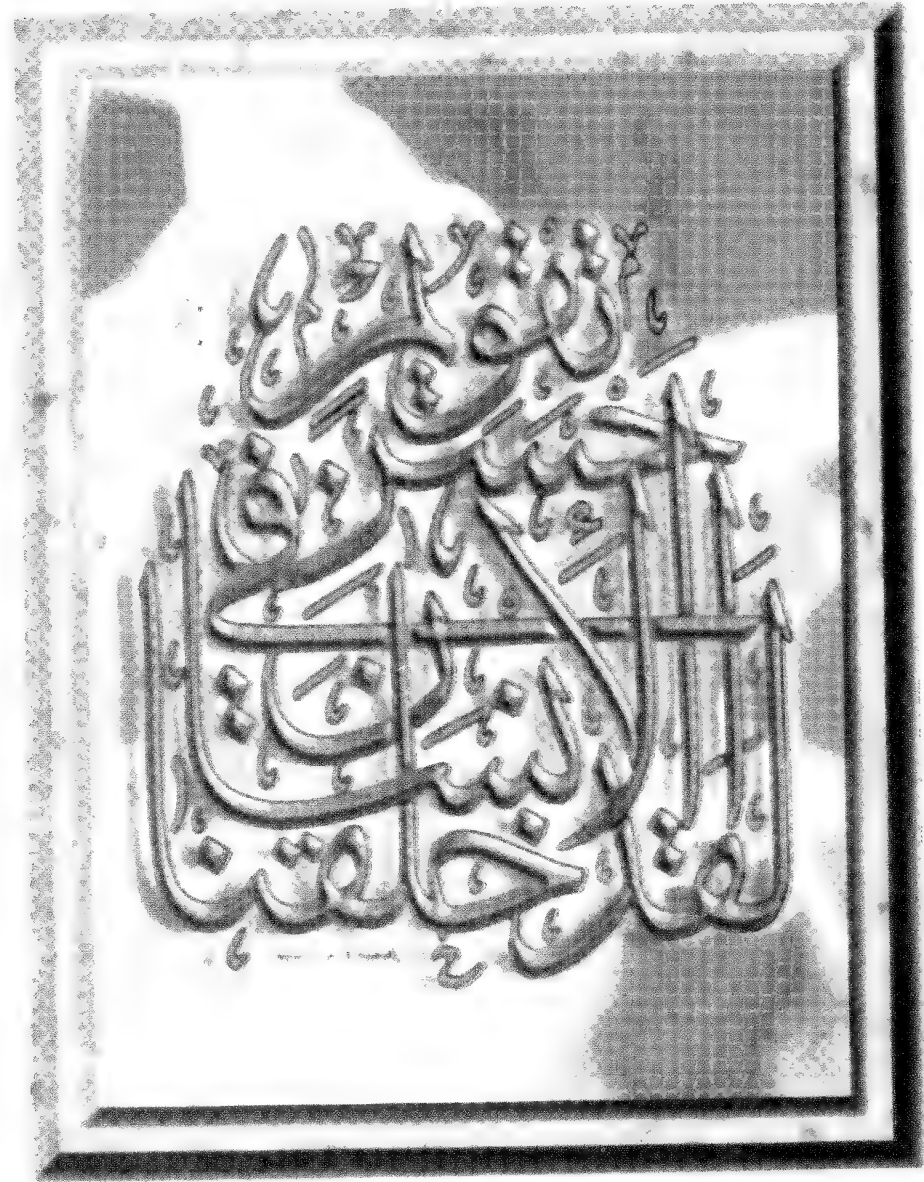 لقد خلقنا
الإنسان في
أحسن
تقويم